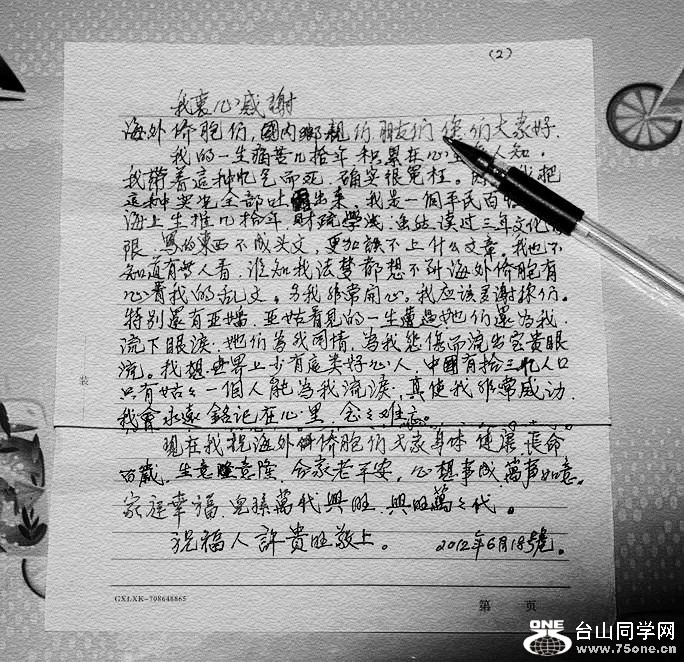 (2)
我衷心感謝
海外侨胞们.國内鄉親们.朋友们 您们大家好.
我的一生痛苦几拾年 积累在心里 人知.
我带着這种忧乞而死.确实很冤枉. 我把
這种实 全部吐露出来.我是一個平民百
海上生推几拾年.财疏學浅.虽然读过三年文化
限.寫的東西不成头文.更加談不上什么文章.我也不
知道有 人看.谁知我法梦都想不到海外侨胞有
心看我的乱文.另我非常開心.我应该多谢你们.
特别還有亚婚.亚姑看見的一生遭遇她们還为我
流下眼淚.她们為我同情.為我悲傷而流出宝贵眼
流.我想世界上少有這类好心人.中國有拾三亿人口
只有姑々一個人能為我流淚.真使我非常感动.
我會永遠銘记在心里.念念难忘.
现在我祝海外侨胞们大家身体健康.長命
百歲.生意隆意隆.合家老平安.心想事成.萬事如意.
家庭幸福.兒孫萬代興旺.興旺萬々代.
祝福人許貴旺敬上. 2012年6月18号.
装
GXLXK-708648865
第 页
ONE
台山同学网
www.75one.cn